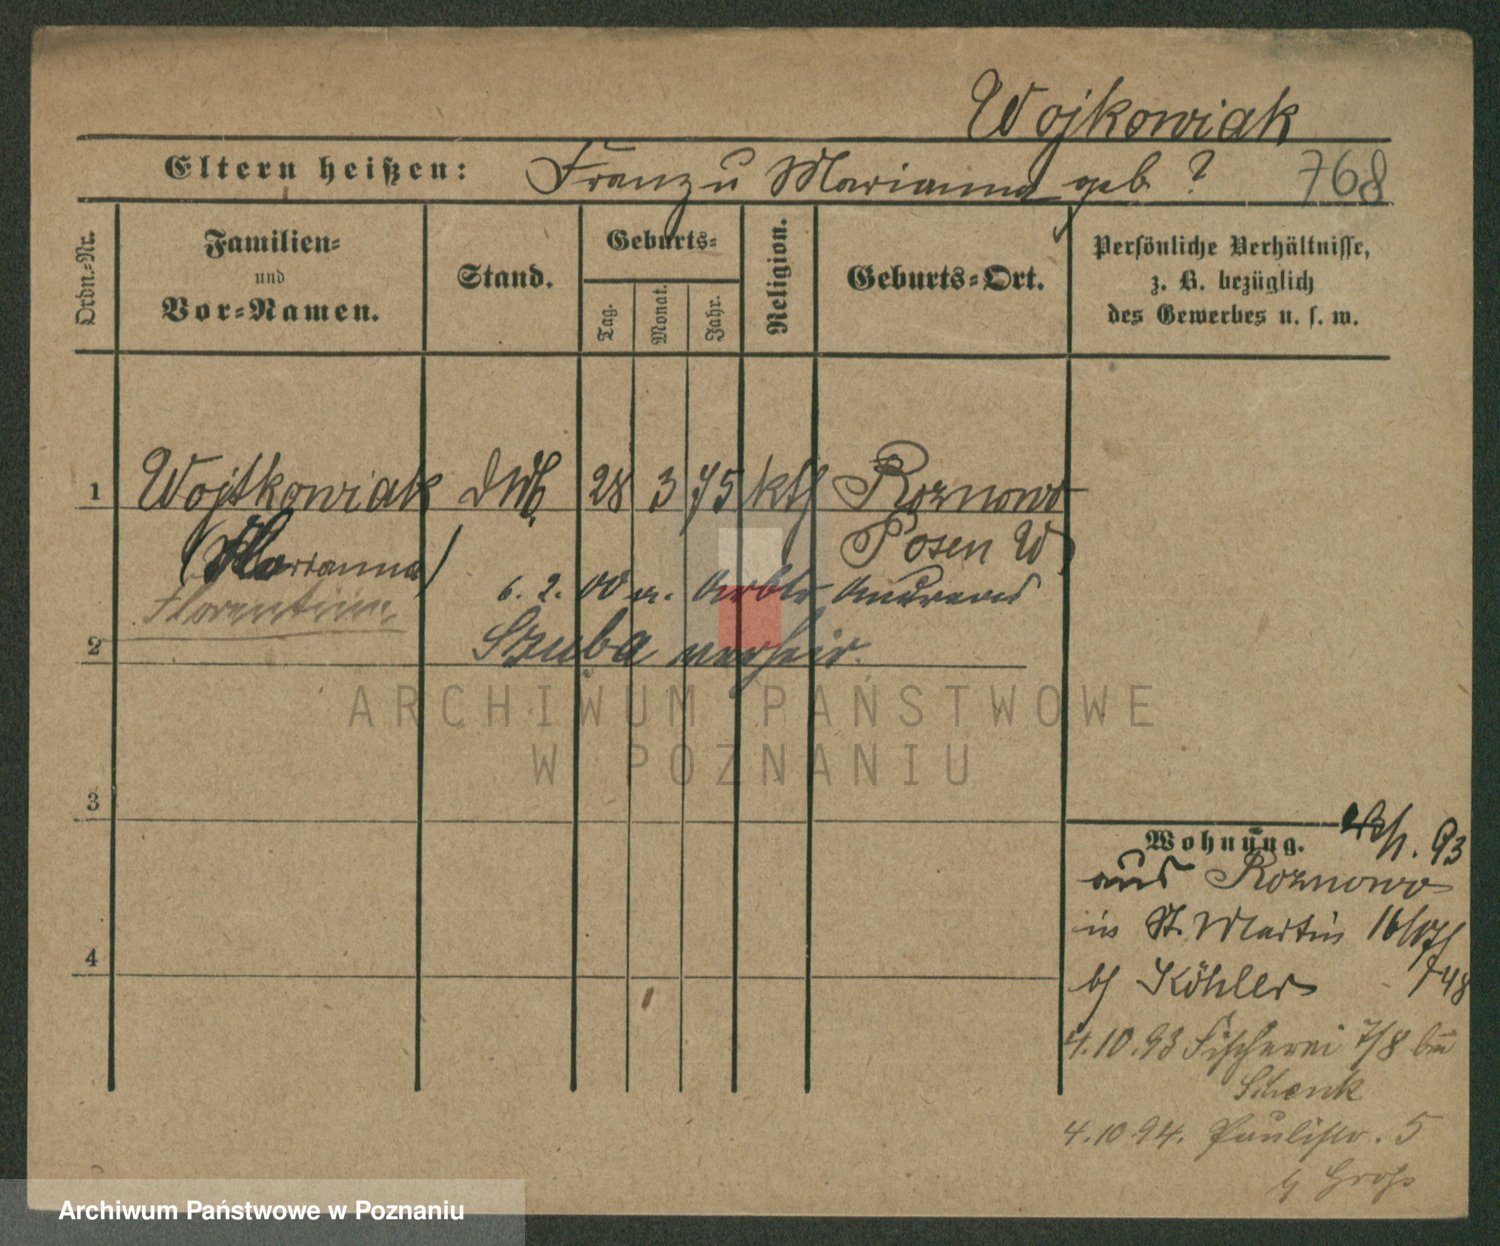 Wojkowiak
Eltern heißen: Franz u Marianna geb ? 768
Ordn.-Nr.
Familien-
und
Vor-Namen.
Stand.
Geburts-
Tag.
Monat.
Jahr.
Religion.
Geburts-Ort.
Persönliche Verhältnisse,
z. B. bezüglich
des Gewerbes u. s. w.
1 Wojtkowiak 28 3 75 kth Roznowo
Posen W
(Marianna)
6. 2. 00 m. Arbtr Andreas
Florentine
2 Szuba verheir.
ARCHIWUM PAŃSTWOWE
W POZNANIU
3
Wohnung. 93
aus Roznowo
in St. Martin 16/17
b/ Köhler 748
4
4.10.93 Fischerei 7/8 bei
Schenk
4.10 94. Paulistr. 5
b/ Groß
Archiwum Państwowe w Poznaniu